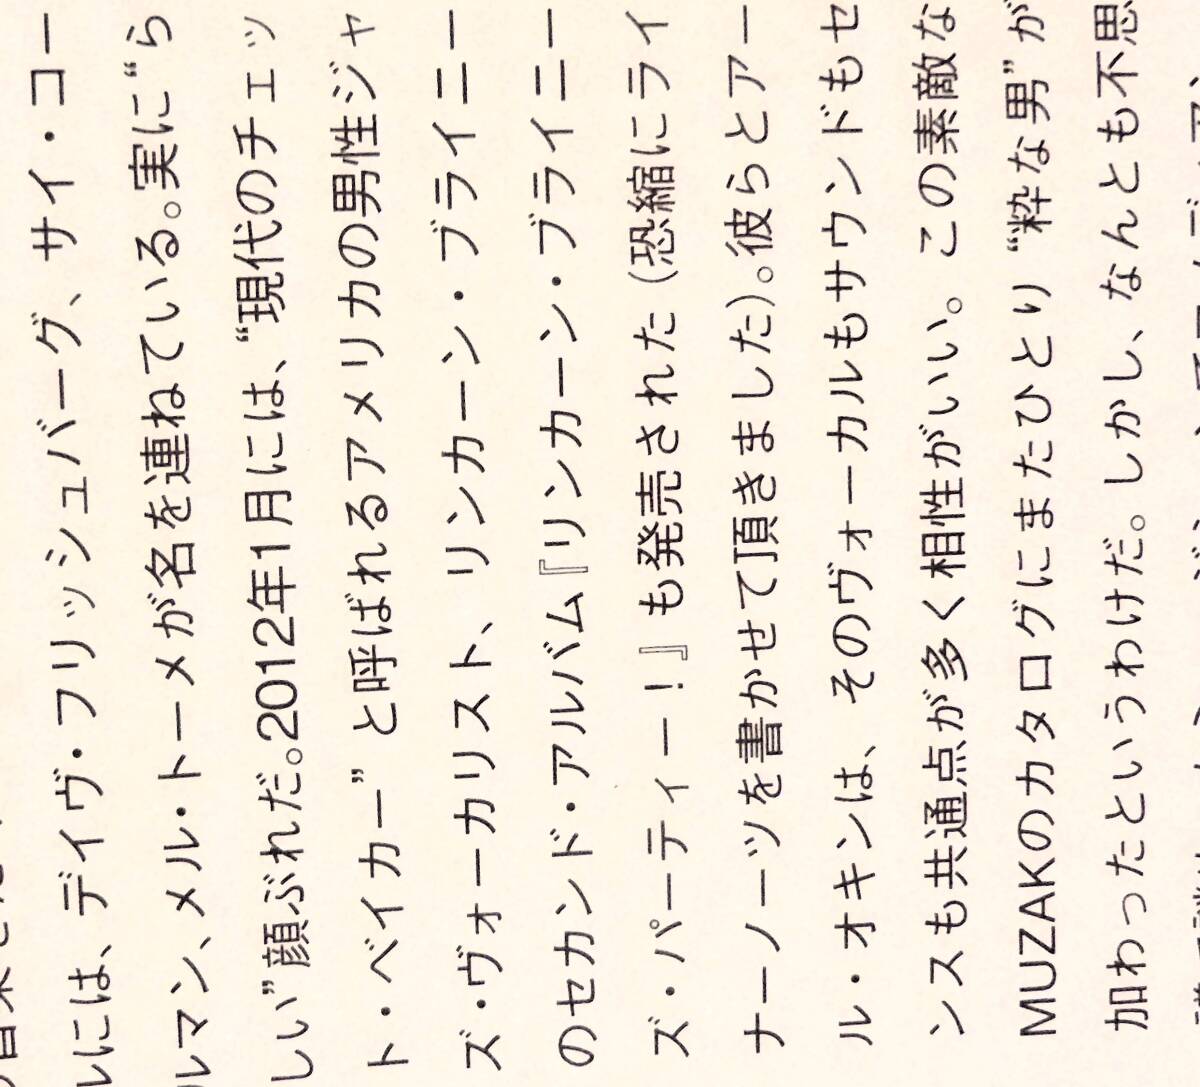 には、デイヴ・フリッシュバーグ、サイ・コー
ルマン、メル・トーメが名を連ねている。実に“ら
しい”顔ぶれだ。2012年1月には、“現代のチェッ
ト・ベイカー”と呼ばれるアメリカの男性ジャ
ズ・ヴォーカリスト、リンカーン・ブライニー
のセカンド・アルバム『リンカーン・ブライニー
ズ・パーティー！』も発売された（恐縮にライ
ナーノーツを書かせて頂きました）。彼らとアー
ル・オキンは、そのヴォーカルもサウンドもセ
ンスも共通点が多く相性がいい。この素敵な
MUZAKのカタログにまたひとり“粋な男”が
加わったというわけだ。しかし、なんとも不思